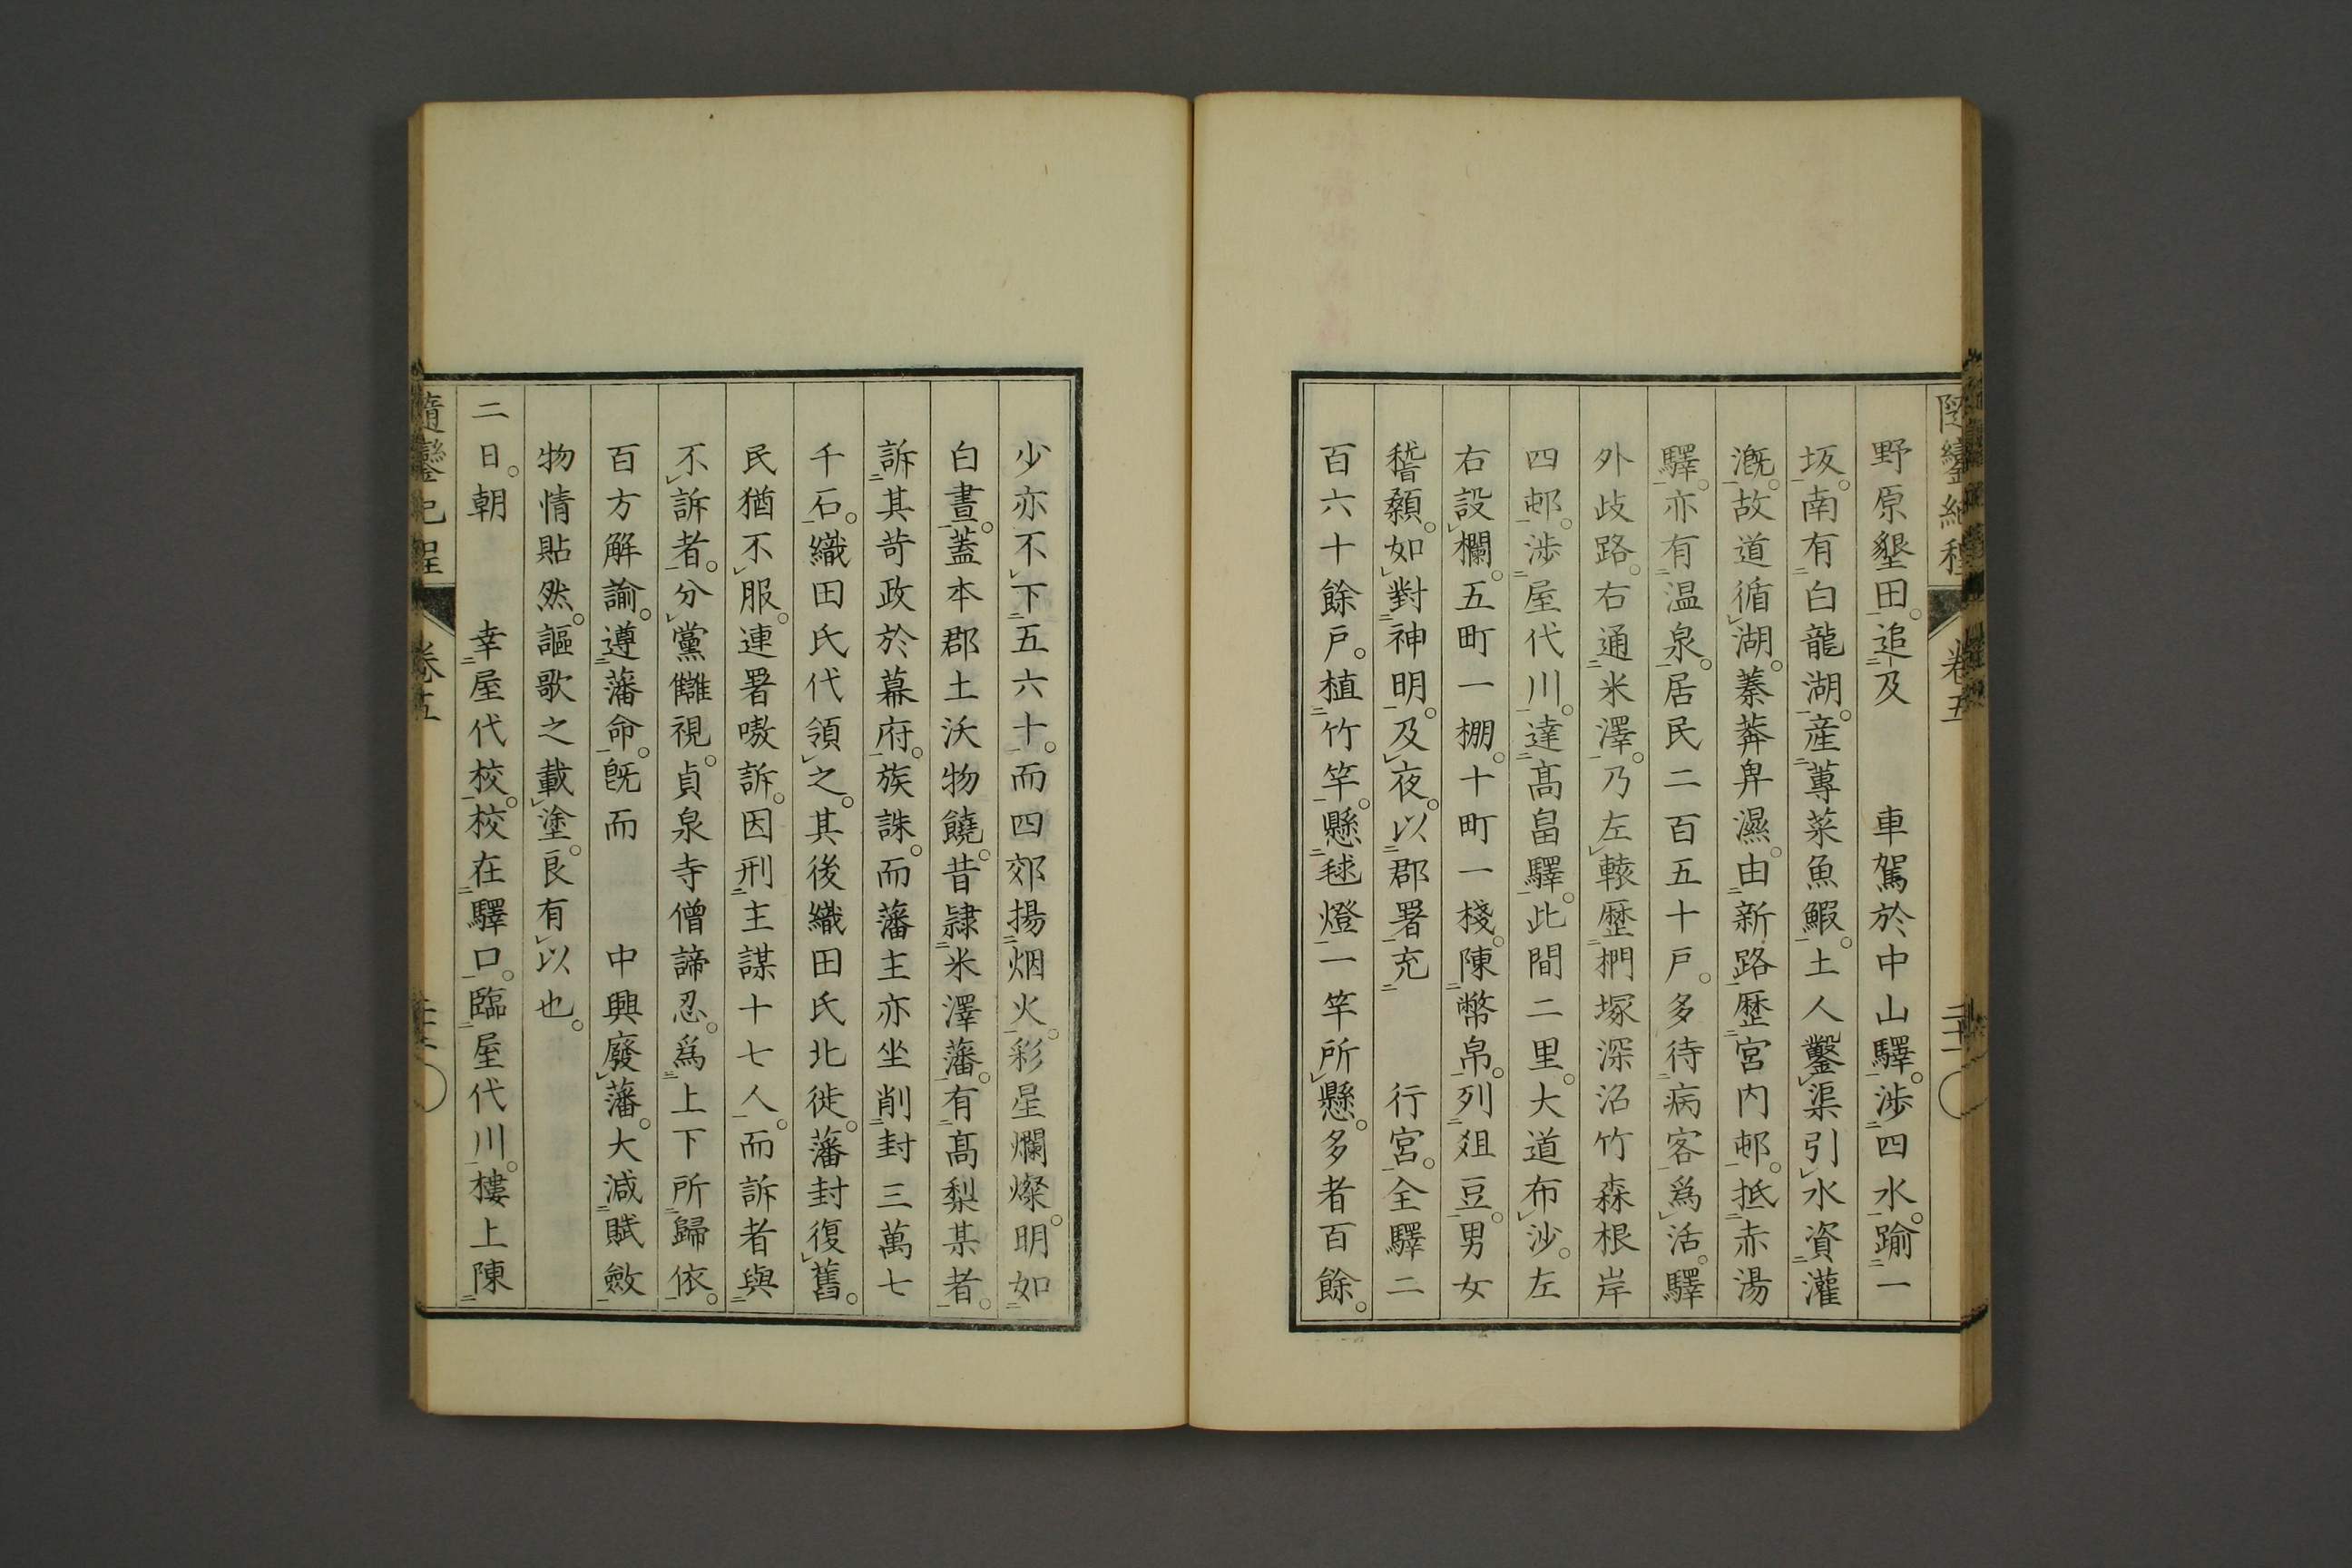 隨鑾紀程 卷五
野原墾田。追及　車駕於中山驛。渉四水。踰一
坂。南有白龍湖。産蓴菜魚鰕。土人鑿渠引水資灌
漑。故道循湖。蓁莽卑濕。由新路歴宮内邨。抵赤湯
驛。亦有温泉。居民二百五十戸。多待病客爲活。驛
外歧路。右通米澤。乃左轅歴椚塚深沼竹森根岸
四邨。渉屋代川。達髙畠驛。此間二里。大道布沙。左
右設欄。五町一棚。十町一棧。陳幣帛。列爼豆。男女
稽顙。如對神明。及夜。以郡署充　行宮。全驛二
百六十餘戸。植竹竿。懸毬燈。一竿所懸。多者百餘。
少亦不下五六十。而四郊揚烟火。彩星爛燦。明如
白晝。蓋本郡土沃物饒。昔隷米澤藩。有髙梨某者。
訴其苛政於幕府。族誅。而藩主亦坐削封三萬七
千石。織田氏代領之。其後織田氏北徙。藩封復舊。
民猶不服。連署嗷訴。因刑主謀十七人。而訴者與
不訴者。分黨讎視。貞泉寺僧諦忍。爲上下所歸依。
百方解諭。遵藩命。既而　中興廢藩。大減賦斂
物情貼然。謳歌之載塗。良有以也。
二日。朝　幸屋代校。校在驛口。臨屋代川。樓上陳
隨鑾紀程 卷五